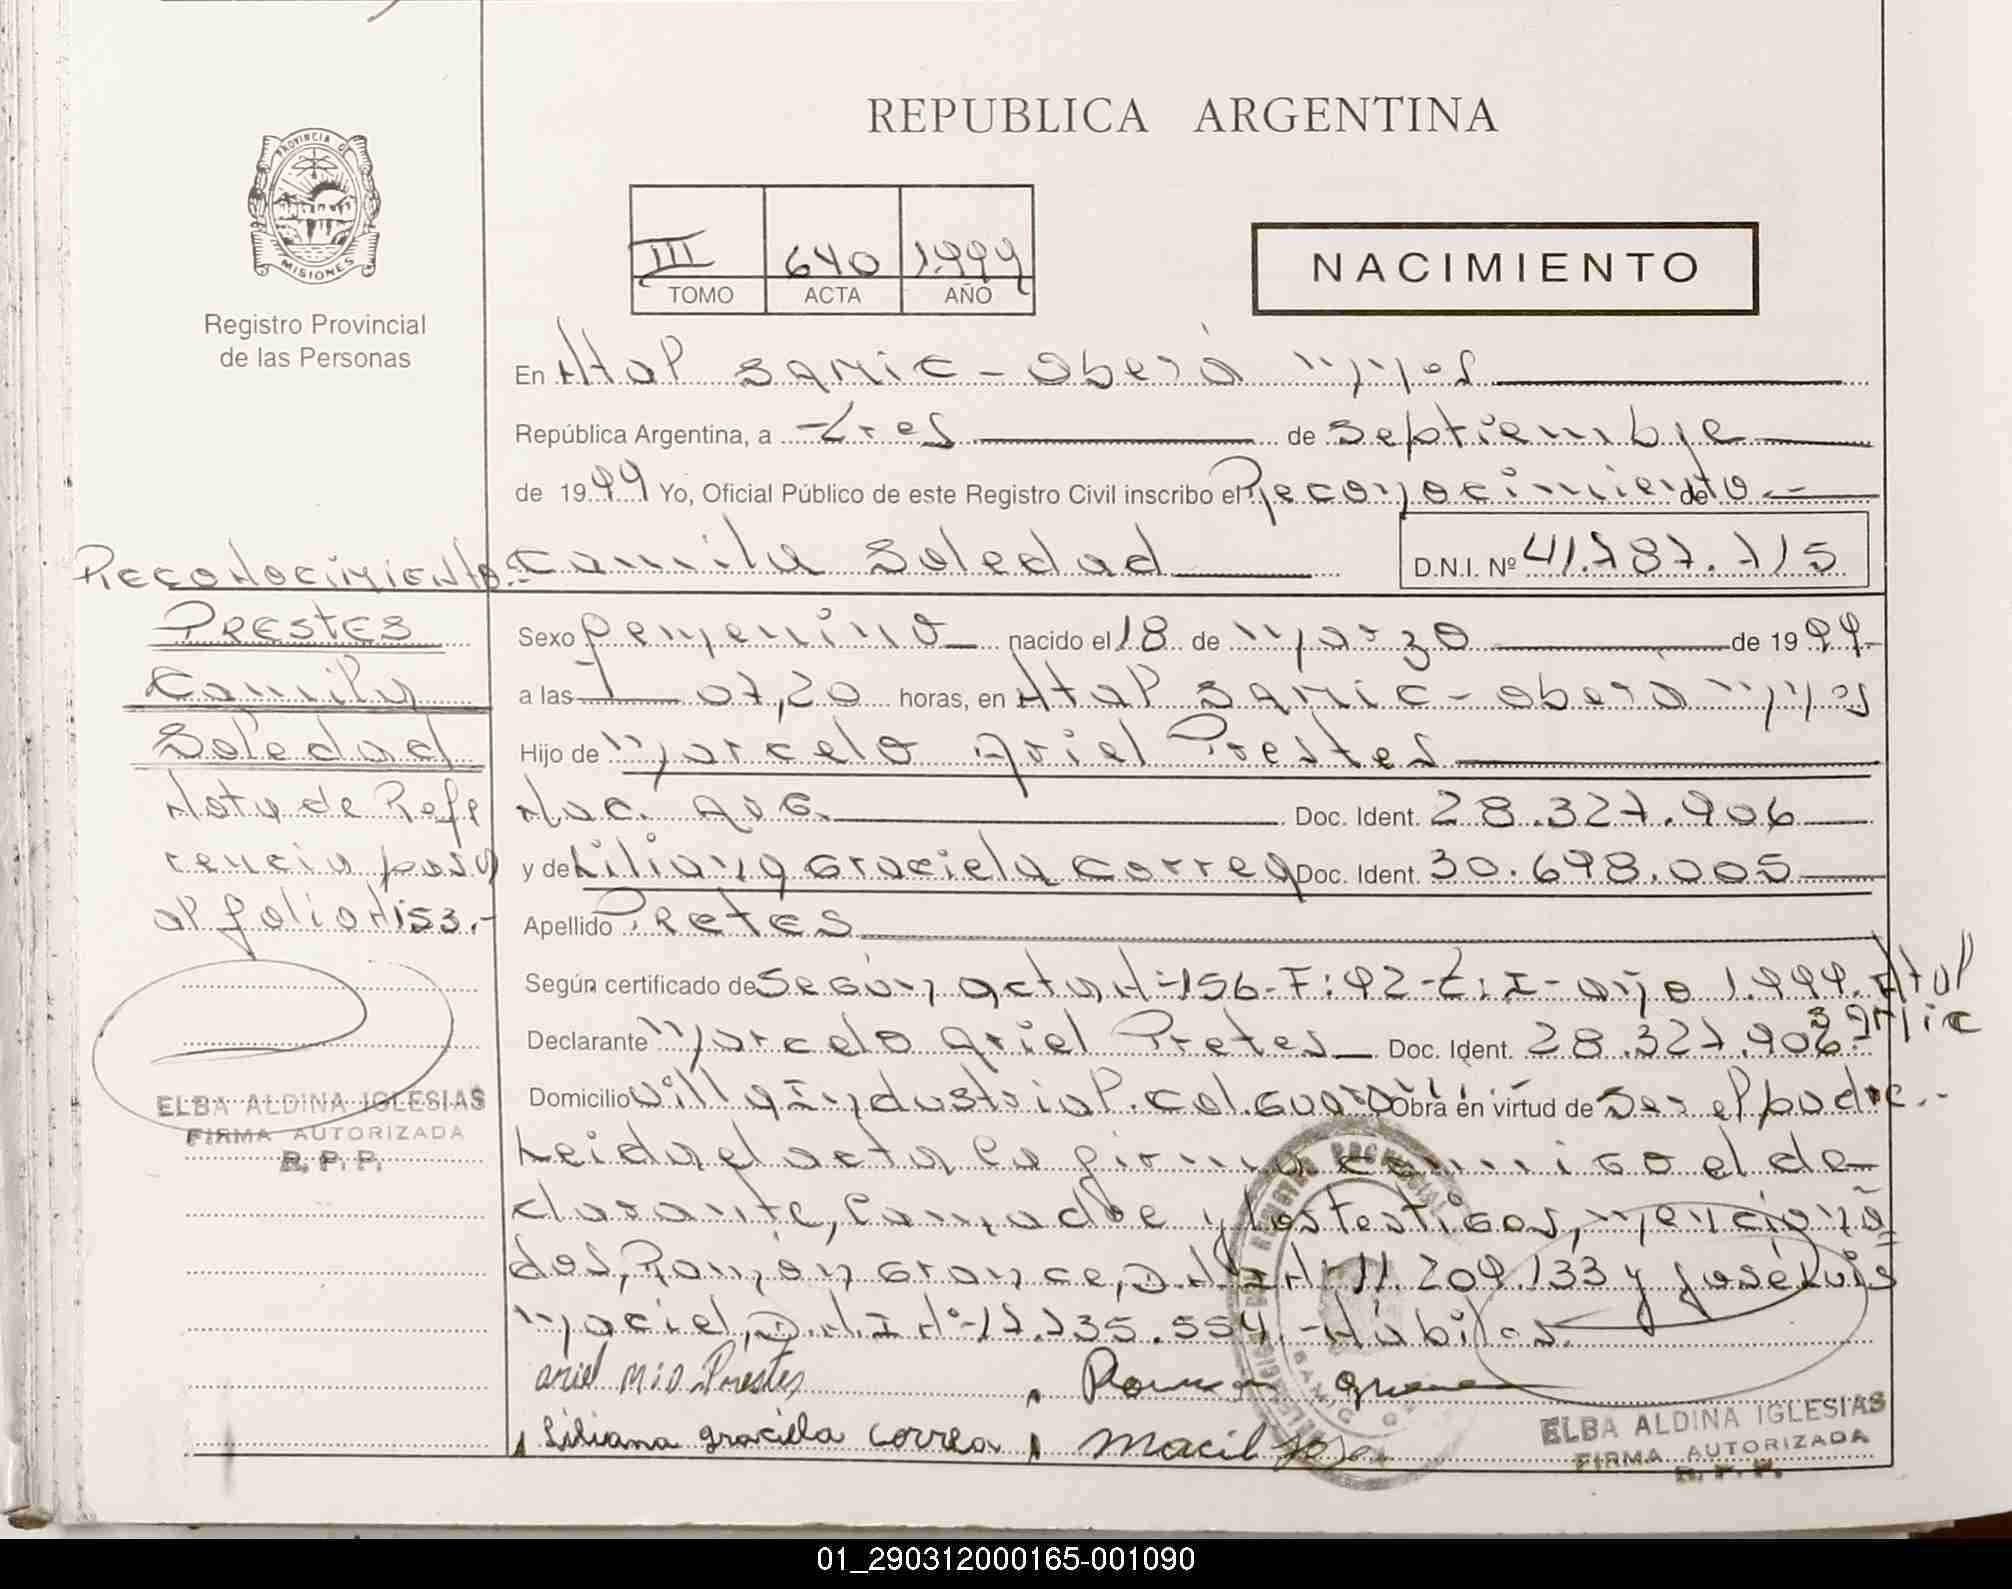 REPUBLICA ARGENTINA
PROVINCIA DE
MISIONES
Registro Provincial
de las Personas
III 640 1.999
TOMO ACTA AÑO
NACIMIENTO
En Htal SAMIC - Oberá Mnes
República Argentina, a tres de septiembre
de 1999 Yo, Oficial Público de este Registro Civil inscribo el Reconocimiento de
Camila Soledad D.N.I. Nº 41.787.715
Sexo femenino nacido el 18 de marzo de 1999.-
a las 07,20 horas, en Htal SAMIC - Oberá Mnes
Hijo de Marcelo Ariel Prestes
Nac. Arg. Doc. Ident. 28.327.906
y de Liliana Graciela Correa Doc. Ident. 30.698.005
Apellido Pretes
Según certificado de Según acta Nº 156-F:92-T:I-año 1.999. Htal
SAMIC
Declarante Marcelo Ariel Pretes Doc. Ident. 28.327.906.
Domicilio Villa Industrial. Col. Guaraní. Obra en virtud de ser el padre.-
Leida el acta la firma conmigo el de-
clarante, la madre y los testigos, menciona=
dos, Ramón Grance, D.N.I Nº 11.209.133 y José Luis
Maciel, D.N.I Nº 17.735.554.- Hábiles.
Ariel Mio Prestes
Liliana Graciela Correa
Maciel Jose
ELBA ALDINA IGLESIAS
FIRMA AUTORIZADA
R. P. P.
Reconocimiento.-
Prestes
Camila
Soledad
Nota de Refe
rencia pasa
al folio Nº 153.-
ELBA ALDINA IGLESIAS
FIRMA AUTORIZADA
R. P. P.
01_290312000165-001090